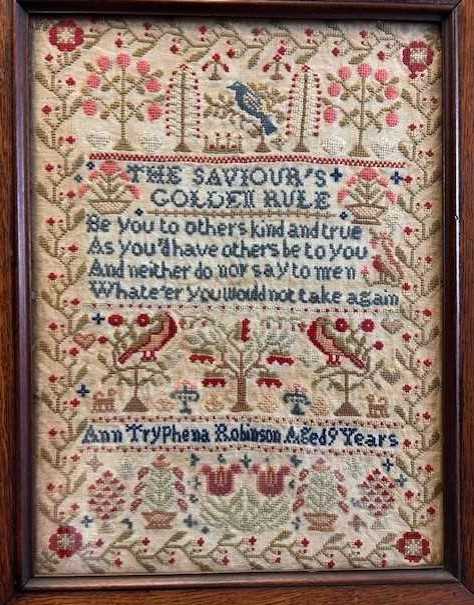 THE SAVIOUR'S
GOLDEN RULE
Be you to others kind and true
As you'd have others be to you
And neither do nor say to men
Whate'er you would not take again
Ann Tryphena Robinson Aged 9 Years